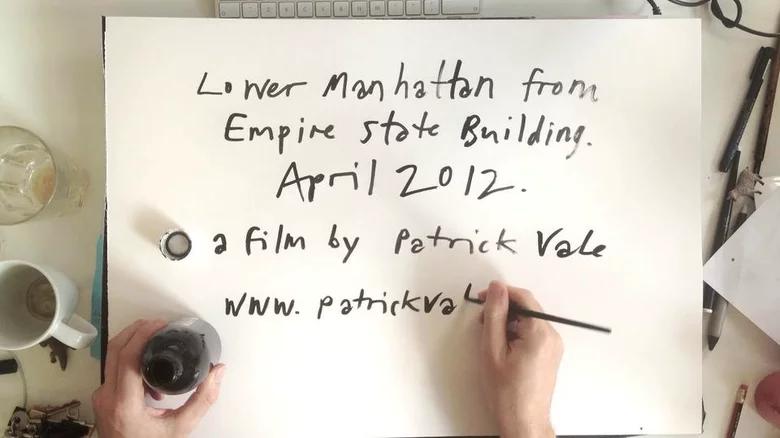 Lower Manhattan from
Empire State Building.
April 2012.
a film by Patrick Vale
www.patrickval